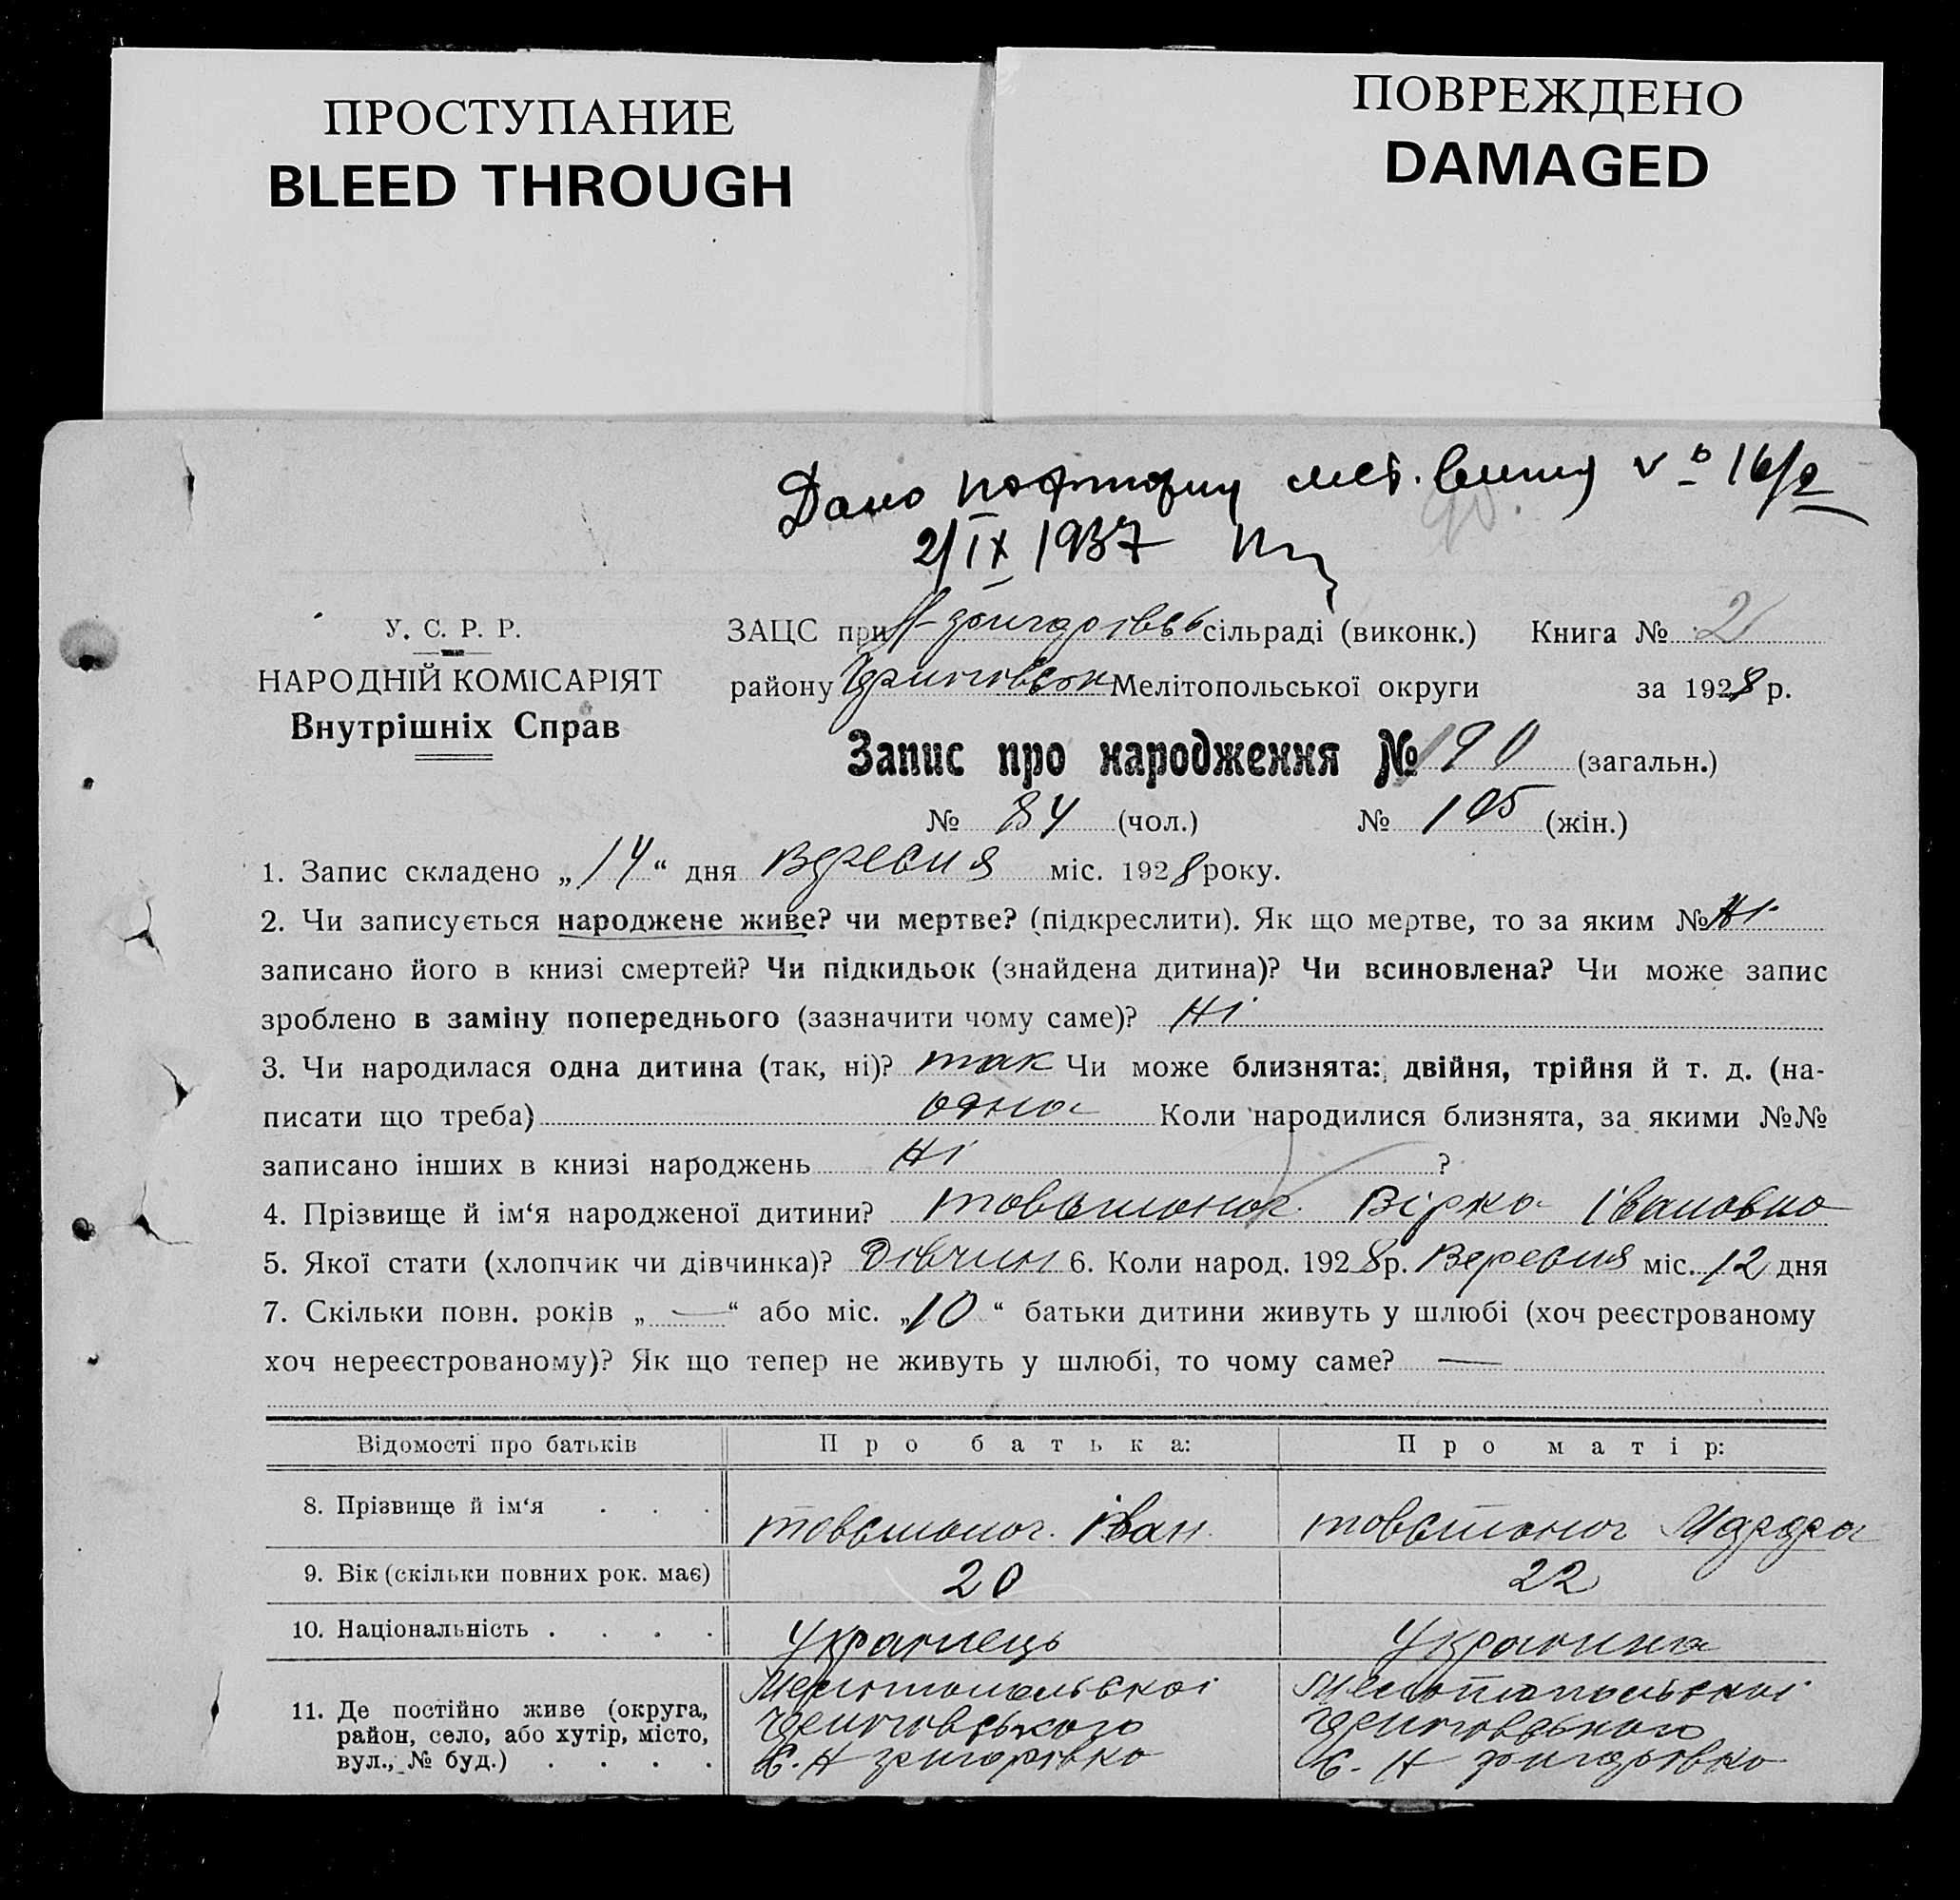 ПРОСТУПАНИЕ
BLEED THROUGH
ПОВРЕЖДЕНО
DAMAGED
Дано повторну мет. випис № 16/2
2/IX 1937
У. С. Р. Р.
НАРОДНІЙ КОМІСАРІЯТ
Внутрішніх Справ
ЗАЦС при сільраді (виконк.) Книга № 2
району Мелітопольської округи за 1928 р.
Запис про народження № 190 (загальн.)
№ 84 (чол.) № 105 (жін.)
1. Запис складено „14“ дня Вересня міс. 1928 року.
2. Чи записується народжене живе? чи мертве? (підкреслити). Як що мертве, то за яким № Ні
записано його в книзі смертей? Чи підкидьок (знайдена дитина)? Чи всиновлена? Чи може запис
зроблено в заміну попереднього (зазначити чому саме)? Ні
3. Чи народилася одна дитина (так, ні)? так Чи може близнята: двійня, трійня й т. д. (на-
писати що треба) одна Коли народилися близнята, за якими №№
записано інших в книзі народжень Ні ?
4. Прізвище й ім‘я народженої дитини? Товстоног Вірка Івановна
5. Якої стати (хлопчик чи дівчинка)? Дівчин 6. Коли народ. 1928 р. Вересня міс. 12 дня
7. Скільки повн. років „—“ або міс. „10“ батьки дитини живуть у шлюбі (хоч реєстрованому
хоч нереєстрованому)? Як що тепер не живуть у шлюбі, то чому саме? —
Відомості про батьків Про батька: Про матір:
8. Прізвище й ім‘я . . . Товстоног Іван Товстоног
9. Вік (скільки повних рок. має) 20 22
10. Національність . . . . Українець Українка
11. Де постійно живе (округа, Мелітопольскоі Мелітопольскоі
район, село, або хутір, місто,
вул., № буд.) . . . . С. Н Григорівка С. Н Григорівка